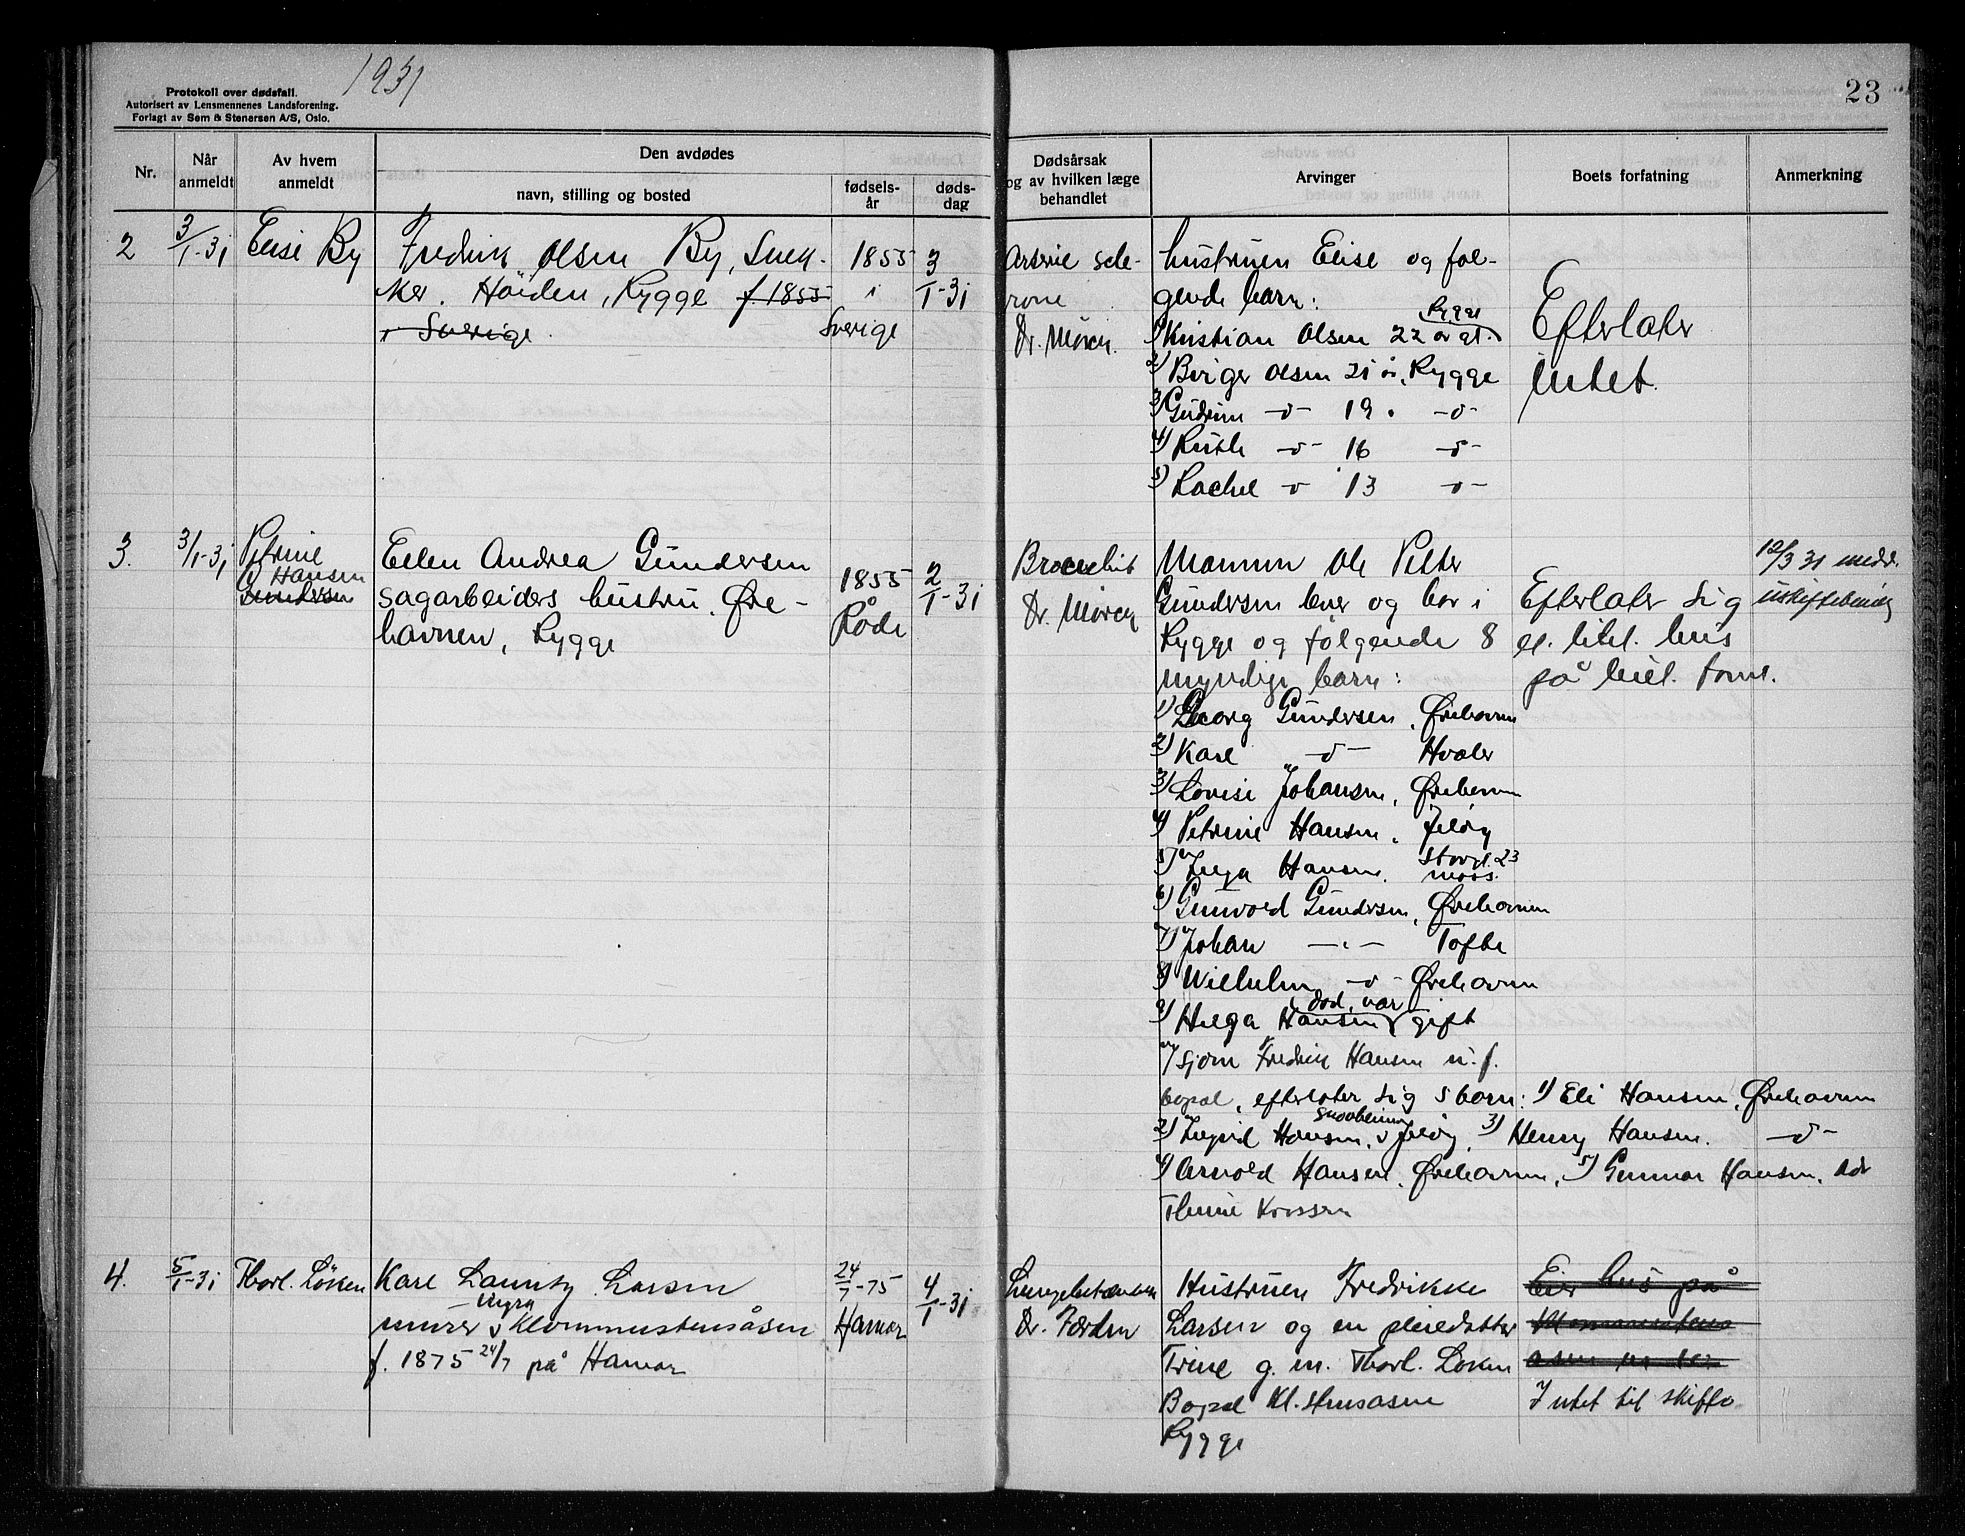 1931
23
Protokoll over dødsfall.
Autorisert av Lensmennenes Landsforening.
Forlagt av Sem & Stenersen A/S, Oslo.
Nr.
Når anmeldt
Av hvem anmeldt
Den avdødes
navn, stilling og bosted
fødsels-år
døds-dag
Dødsårsak og av hvilken læge behandlet
Arvinger
Boets forfatning
Anmerkning
2
3/1-31
Elise By
Fredrik Olsen By, Snek-
ker. Höiden, Rygge f. 1855
i Sverige
1855
i
Sverige
3/1-31
Dr. Møren.
hustruen Elise og føl-
gende barn:
Rygge
1) Kristian Olsen 22 år gl.
2) Birger Olsen 21 år, Rygge
3) Gudrun -o- 19 . -o-
4) Ruth -o- 16 -o-
5) Rachel -o- 13 -o-
Efterlater
intet.
3.
3/1-31
Petrine
Hansen
Gundersen
Ellen Andrea Gundersen
sagarbeiders hustru, Øre-
havnen, Rygge
1855
Råde
2/1-31
Dr. Møren
Mannen Ole Petter
Gundersen lever og bor i
Rygge og følgende 8
myndige barn:
1) Georg Gundersen, Ørehavnen
2) Karl -o- Hvaler
3) Lovise Johansen, Ørehavnen
4) Petrine Hansen, Jeløy
5) Inga Hansen, Storgt. 23
Moss.
6) Gunvold Gundersen, Ørehavnen
7) Johan -"- Tofte
8) Wilhelm -o- Ørehavnen
død, var
9) Helga Hansen gift
m/ sjøm Fredrik Hansen u. f.
bopæl, efterlater sig 5 barn: 1) Eli Hansen, Ørehavnen
2) Ingrid Hansen, Jeløy, 3) Henry Hansen. -o-
4) Arnold Hansen, Ørehavnen, 5) Gunnar Hansen, adr
Efterlater sig
et litet hus
på leiet tomt.
12/3 31 medd.
uskiftebevilg
4.
5/1-31
Thorl. Löken
Karl Lauritz Larsen
murer Klommestensåsen
f. 1875 24/7 på Hamar
24/7-75
Hamar
4/1-31
Lungebetændelse
Dr. Førden
Hustruen Fredrikke
Larsen og en pleiedatter
Trine g. m. Thorl. Löken
Bopæl Kl.stensåsen
Rygge
Eier hus på
Intet til skifte